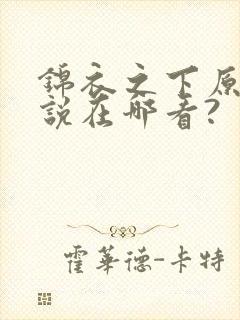 錦衣之下原
說在哪看?
霍華德-卡特